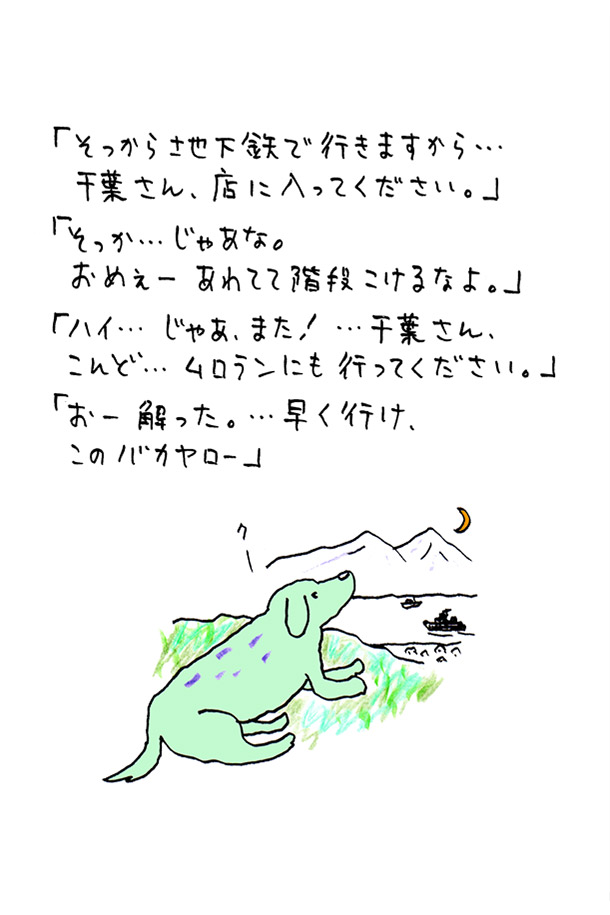 「そっから地下鉄で行きますから…
千葉さん、店に入ってください。」
「そっか…じゃあな。
おめぇー あわてて階段こけるなよ。」
「ハイ… じゃあ、また! …千葉さん、
こんど… ムロランにも 行ってください。」
「おー 解った。…早く行け、
このバカヤロー」
クー